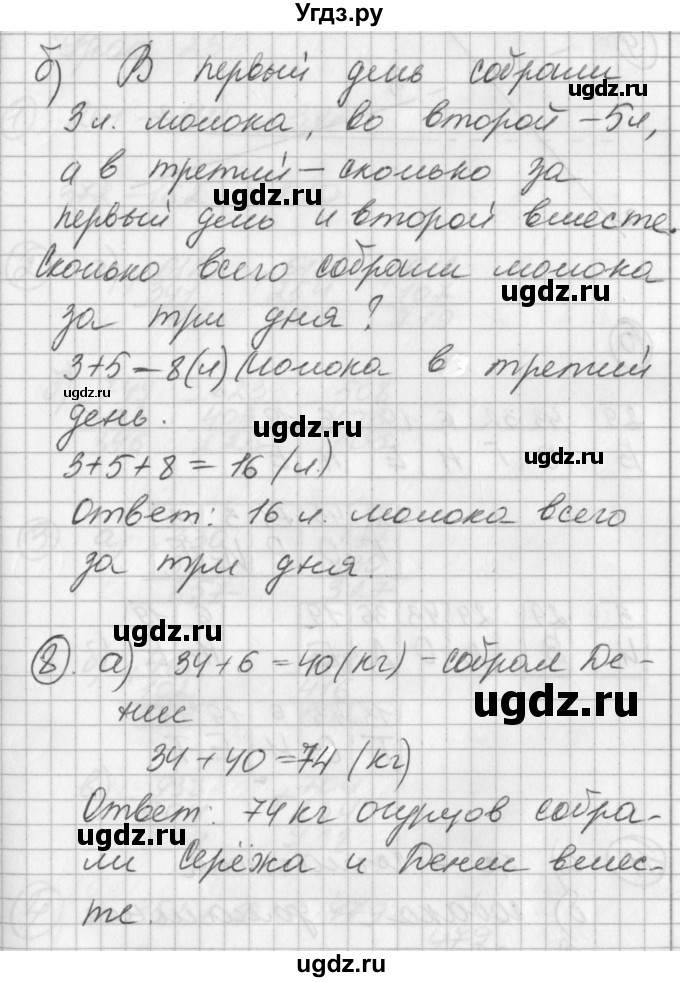 Угдз.ру
б) В первый день собрали
3 л. молока, во второй – 5 л,
а в третий – сколько за
ugdz.ru
первый день и второй вместе.
Сколько всего собрали молока
ugdz.ru
за три дня?
3+5 – 8(л) молока в третий
ugdz.ru
день.
ugdz.ru
3+5+8 = 16 (л.)
ugdz.ru
Ответ: 16 л. молока всего
за три дня.
ugdz.ru
8. а) 34+6 = 40(кг) – собрал Де-
ugdz.ru
нис
34+40=74 (кг)
Ответ: 74 кг огурцов собра-
ugdz.ru
ли Серёжа и Денис вмес-
те.
ugdz.ru